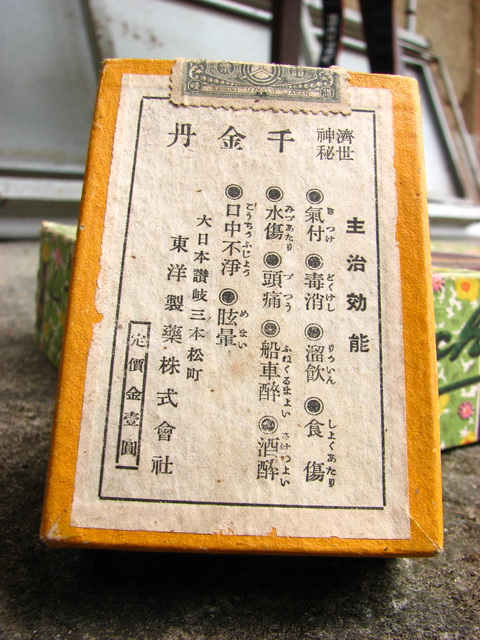 濟世
神秘
千金丹
主治効能
●氣付●毒消●溜飲●食傷
きつけ どくけし りういん しよくあたり
●水傷●頭痛●船車醉●酒醉
みづあたり づつう ふねくるまよい
●口中不淨●眩暈
こうちうふじよう めまい
大日本讃岐三本松町
東洋製藥株式會社
定價金壹圓